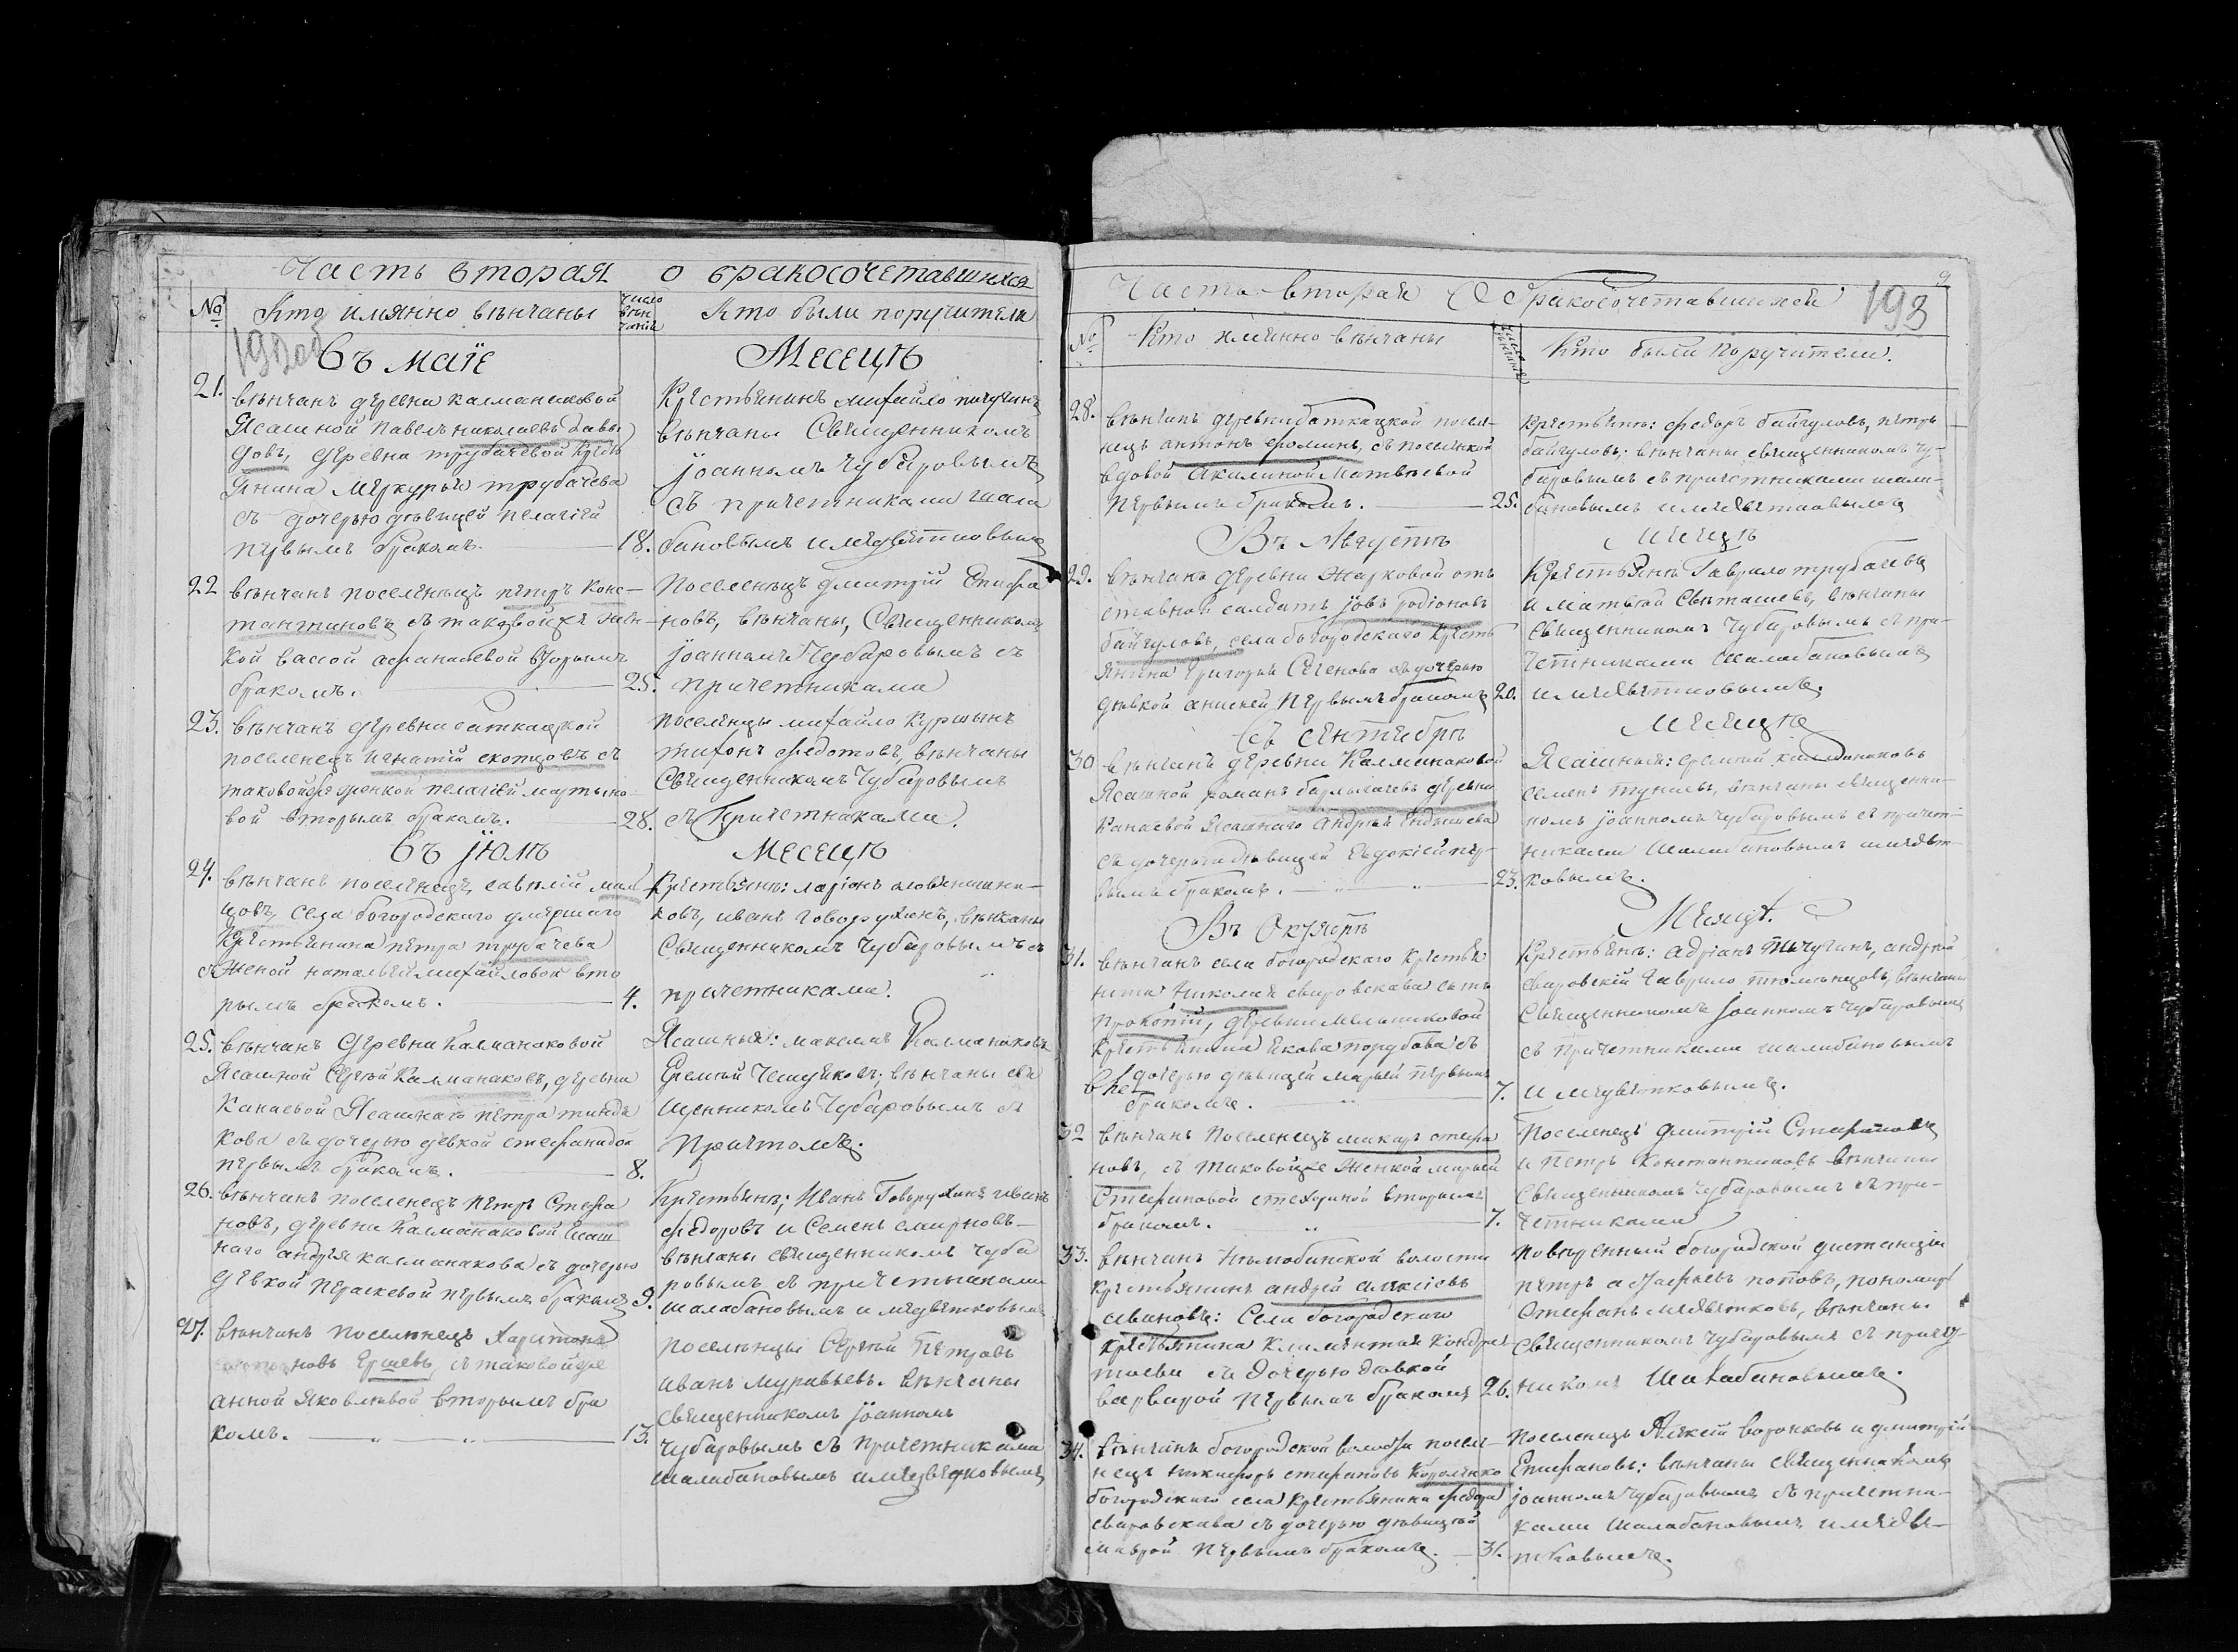 Часть вторая о бракосочетавшихся
№ Кто имянно вѣнчаны число вѣнчанія Кто были поручители
192об
Въ маiе Месецѣ
21. вѣнчанъ деревни калманаковой
Ясашной павелъ николаевъ давы
довъ, деревни трубачевой крестъ
янина меркурья трубачева
съ дочерью дѣвицей пелагiей
первымъ бракомъ. 18.
Крестьянинъ михайло пичугинъ
вѣнчаны Священникомъ
Iоанномъ Чубаровымъ
съ причетниками шала
бановымъ и медвѣтковымъ
22 вѣнчанъ поселенецъ петръ конс-
тантиновъ съ таковой же жен-
кой васой афанасьевой вторымъ
бракомъ. 25.
Поселенецъ дмитрiй Епифа
новъ, вѣнчаны, Священникомъ
Iоанномъ Чубаровымъ съ
причетниками
23. вѣнчанъ деревни баткацкой
поселенецъ игнатiй скотцовъ съ
таковой же женкой пелагiей мартыно-
вой вторымъ бракомъ. 28.
поселенцы михайло Куршинъ
тихонъ федотовъ, вѣнчаны
Священникомъ Чубаровымъ
съ Причетниками.
Въ Iюлѣ Месецѣ
24. вѣнчанъ поселенецъ, савелiй
цовъ, села богородскаго умершаго
Крестьянина петра трубачева
съ Женой натальей михайловой вто
рымъ бракомъ. 4.
Крестьяне: ларiонъ
ковъ, иванъ говорухинъ, вѣнчаны
Священникомъ Чубаровымъ съ
причетниками.
25. вѣнчанъ деревни Калманаковой
Ясашной Сергѣй Калманаковъ, деревни
Канаевой Ясашнаго петра тинде
кова съ дочерью девкой стефанидой
первымъ бракомъ. 8.
Ясашныя: максимъ Калманаковъ
Еремѣй Чешуековъ; вѣнчаны свя
щенникомъ Чубаровымъ съ
Причтомъ.
26. вѣнчанъ поселенецъ петръ Стефа
новъ, деревни Калманаковой Ясаш
наго андрея калманакова съ дочерью
девкой параскевой первымъ бракомъ 9.
Крестьяне; Иванъ Говорухинъ иванъ
федоровъ и Семенъ смирновъ-
вѣнчаны священникомъ Чуба
ровымъ съ причетниками
шалабановымъ и медвѣтковымъ
27. вѣнчанъ поселенецъ Харитонъ
новъ Ершевъ, съ таковой же
анной Яковлевой вторымъ бра
комъ. 13.
поселенцы Сергѣй Петровъ
иванъ муравьевъ. вѣнчаны
священникомъ Iоанномъ
чубаровымъ съ причетниками
шалабановымъ и медвѣтковымъ
Часть вторая О бракосочетавшихся 193
№ Кто имянно вѣнчаны Кто были Поручители.
28. вѣнчанъ деревни баткацкой посел-
нецъ антонъ фоминъ, съ поселкой
вдовой Акилиной Матвѣевой
Первымъ бракомъ. 25.
Крестьяне: федоръ байгуловъ, петръ
байгуловъ; вѣнчаны священникомъ чу-
баровымъ съ причетниками шала-
бановымъ и медвѣтковымъ
Въ Августѣ Месецѣ
29. вѣнчанъ деревни Жарковой от
ставной салдатъ Iовъ Родiоновъ
байгуловъ, села богородскаго крестъ
янина Григорья Сеченова съ дочерью
девкой анисьей Первымъ бракомъ 20.
Крестьяне Гаврило трубачевъ
и матвѣй Свѣташевъ, вѣнчаны
Священникомъ Чубаровымъ съ при-
четниками Шалабановымъ
и медвѣтковымъ.
Въ сентебрѣ месецѣ
30 вѣнчанъ деревни Калманаковой
Ясашной романъ деревни
Канаевой Ясашнаго Андрея Ендышева
съ дочерью дѣвицей Евдокiей пер-
вымъ бракомъ. 23.
Ясашныя: еремѣй калманаковъ
семенъ тунаевъ, вѣнчаны священни-
комъ Iоанномъ Чубаровымъ съ причет-
никами Шалабановымъ и медвѣт-
ковымъ.
Въ Октебрѣ Месецѣ.
31. вѣнчанъ села богородскаго крестья
нина Николая сваровскава сынъ
Прокопiй, деревни Мельниковой
Крестьянина Якова порубова съ
дочерью дѣвицей марьей первымъ
бракомъ. 7.
Крестьяне: Адрiанъ пичугинъ, андрей
сваровскiй Гаврило вѣнчаны
Священникомъ Iоанномъ Чубаровымъ
съ Причетниками шалабановымъ
и медвѣтковымъ.
32 вѣнчанъ Поселенецъ макаръ стефа
новъ, съ таковой же женкой марьей
Стефановой вторымъ
бракомъ. 7.
Поселенецъ дмитрiй Стефановъ
и петръ Константиновъ вѣнчаны
Священникомъ Чубаровымъ съ при-
четниками
33. вѣнчанъ волости
крестьянинъ андрей алексiевъ
ивановъ: Села богородскаго
крестьянина Климентья Кондрат
тьева съ дочерью девкой
варварой Первымъ бракомъ 26.
повѣренный богородской дистанцiи
петръ поповъ, пономарь
Стефанъ медвѣтковъ, вѣнчаны
Священникомъ Чубаровымъ съ причет-
никомъ Шалабановымъ.
34. вѣнчанъ богородской волости посел-
нецъ Никифоръ стефановъ Короленко
богородскаго села крестьянина федора
сваровскава съ дочерью дѣвицей
маврой Первымъ бракомъ. 31.
Поселенецъ Алексѣй воронковъ и дмитрiй
Епифановъ: вѣнчаны священникомъ
Iоанномъ Чубаровымъ съ причетни-
ками Шалабановымъ и медвѣ-
тковымъ.